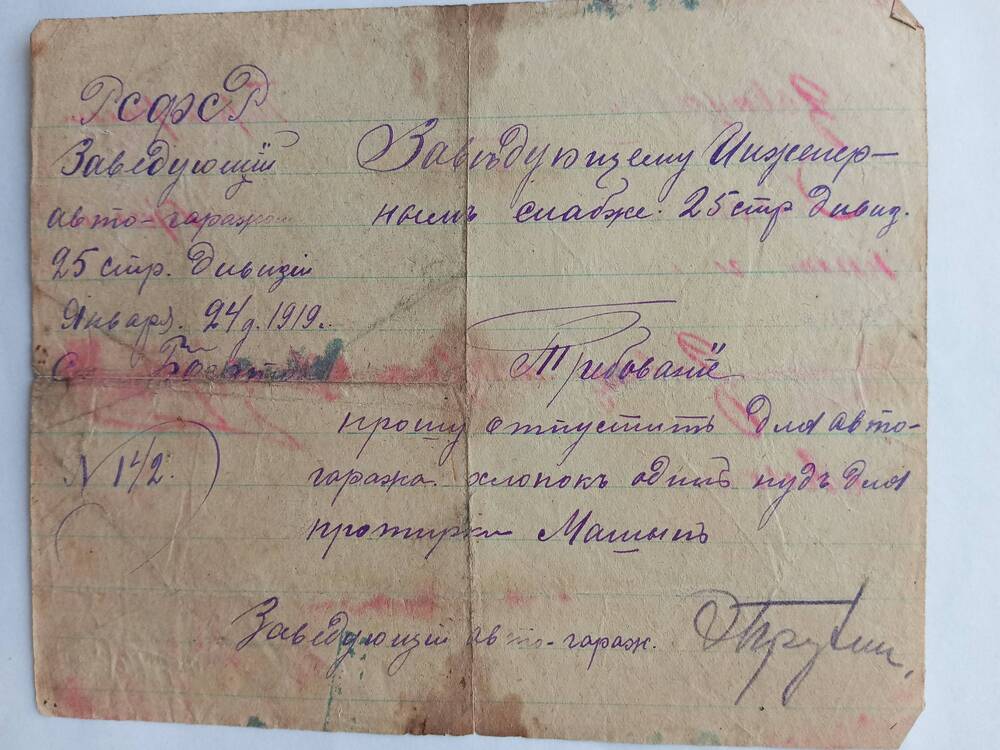 РСФСР
Заведующій
авто-гаражом
25 стр. дивизіи
Января. 24 д. 1919 г.
С.
N 142.
Завѣдующему Инженер-
нымъ снабже. 25 стр дивиз.
Требованіе
прошу отпустить для авто-
гаража. хлопокъ одинъ пудъ для
протирки Машынъ
Заведующій авто-гараж.